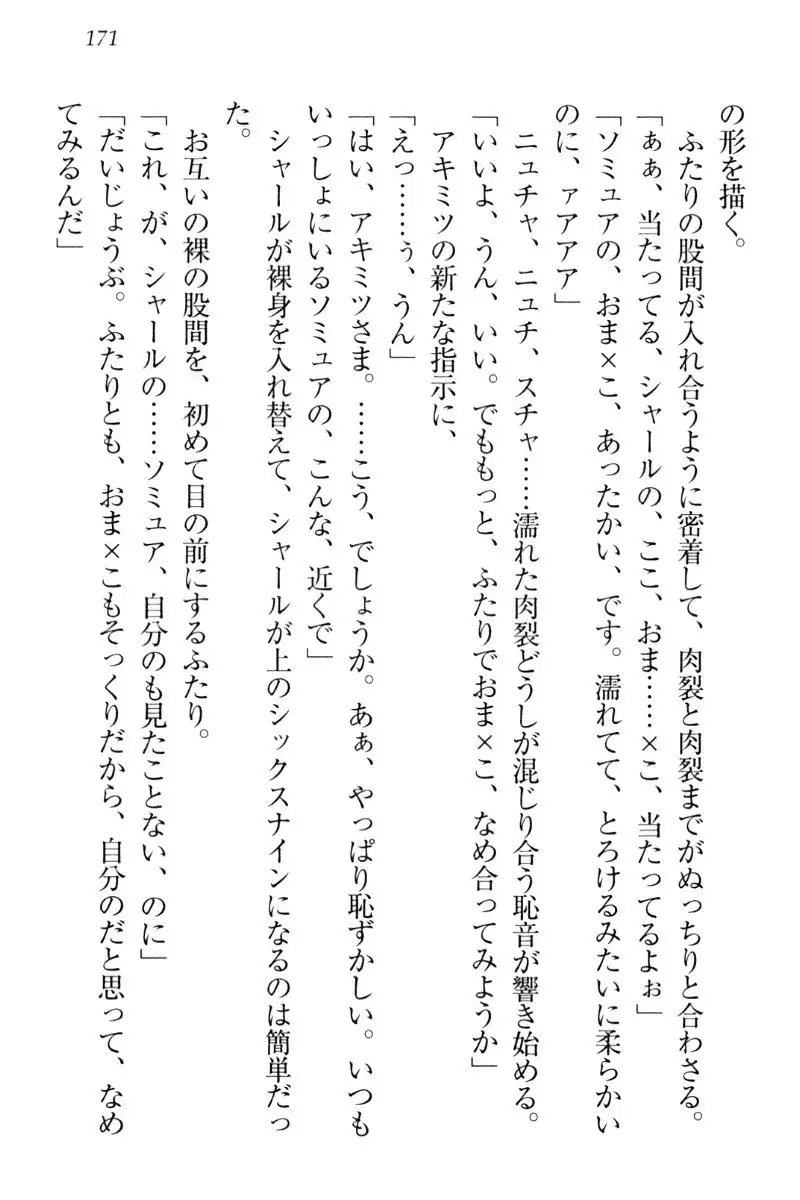 171
の形を描く。
　ふたりの股間が入れ合うように密着して、肉裂と肉裂までがぬっちりと合わさる。
「ぁぁ、当たってる、シャールの、ここ、おま……×こ、当たってるよぉ」
「ソミュアの、おま×こ、あったかい、です。濡れてて、とろけるみたいに柔らかい
のに、ァアアア」
　ニュチャ、ニュチ、スチャ……濡れた肉裂どうしが混じり合う恥音が響き始める。
「いいよ、うん、いい。でももっと、ふたりでおま×こ、なめ合ってみようか」
　アキミツの新たな指示に、
「えっ……ぅ、うん」
「はい、アキミツさま。……こう、でしょうか。あぁ、やっぱり恥ずかしい。いつも
いっしょにいるソミュアの、こんな、近くで」
　シャールが裸身を入れ替えて、シャールが上のシックスナインになるのは簡単だっ
た。
　お互いの裸の股間を、初めて目の前にするふたり。
「これ、が、シャールの……ソミュア、自分のも見たことない、のに」
「だいじょうぶ。ふたりとも、おま×こもそっくりだから、自分のだと思って、なめ
てみるんだ」